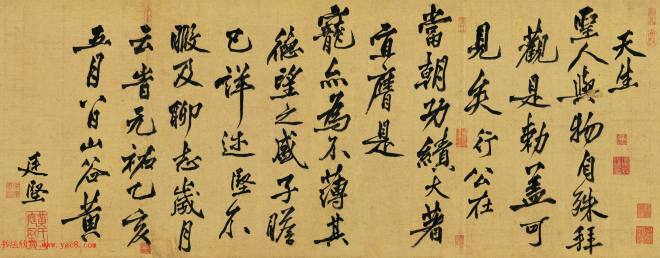 天生
聖人與物自殊拜
觀是勅蓋可
見矣行公在
當朝功績大著
宜膺是
寵亦為不薄其
德望之盛子瞻
已詳述堅不
暇及聊志歲月
云時元祐乙亥
五月八日山谷黃
廷堅
书法欣赏 www.yac8.com